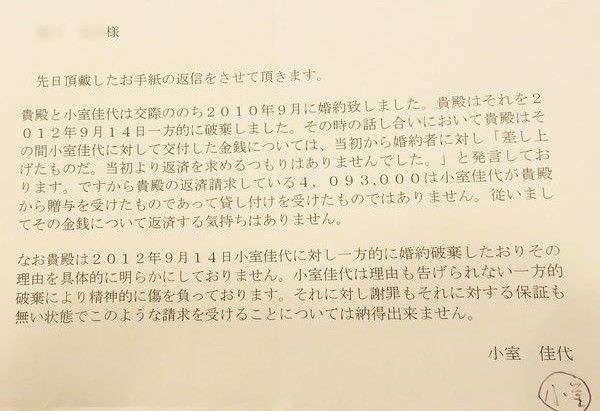 様
先日頂戴したお手紙の返信をさせて頂きます。
貴殿と小室佳代は交際ののち2010年9月に婚約致しました。貴殿はそれを2
012年9月14日一方的に破棄しました。その時の話し合いにおいて貴殿はそ
の間小室佳代に対して交付した金銭については、当初から婚約者に対し「差し上
げたものだ。当初より返済を求めるつもりはありませんでした。」と発言してお
ります。ですから貴殿の返済請求している4,093,000は小室佳代が貴殿
から贈与を受けたものであって貸し付けを受けたものではありません。従いまし
てその金銭について返済する気持ちはありません。
なお貴殿は2012年9月14日小室佳代に対し一方的に婚約破棄したおりその
理由を具体的に明らかにしておりません。小室佳代は理由も告げられない一方的
破棄により精神的に傷を負っております。それに対し謝罪もそれに対する保証も
無い状態でこのような請求を受けることについては納得出来ません。
小室 佳代
小室